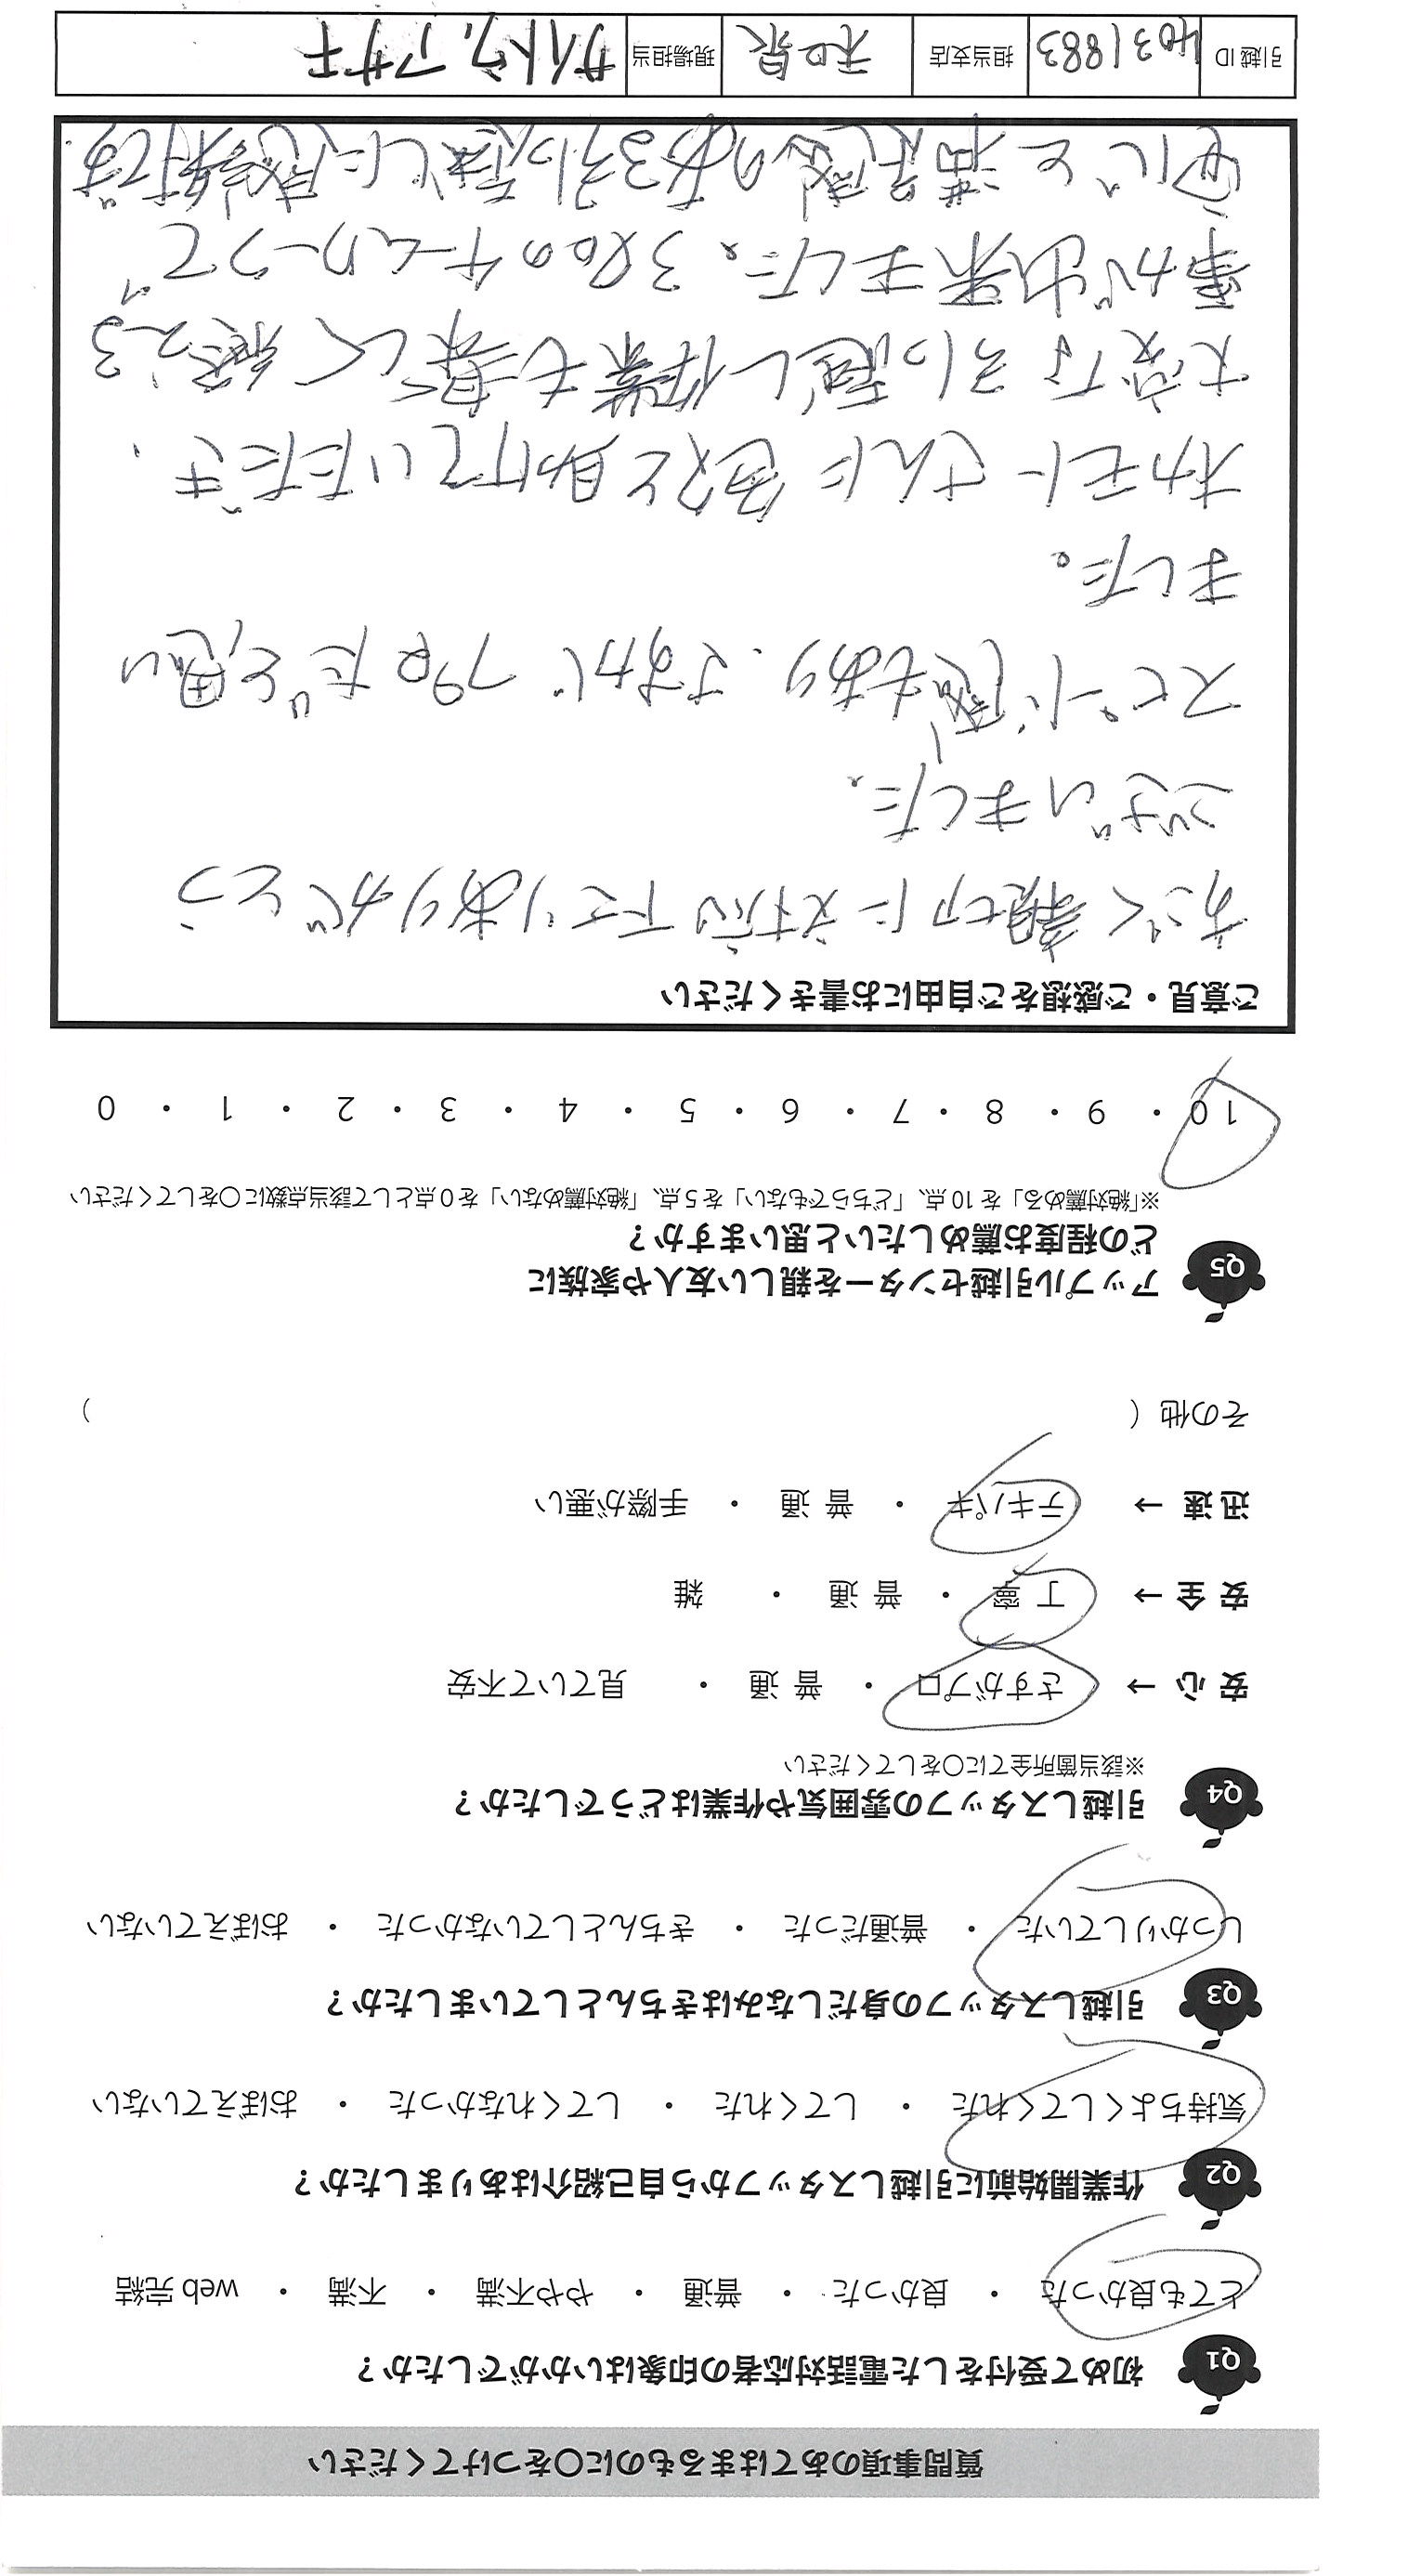 質問事項のあてはまるものに○をつけてください
Q1 初めて受付をした電話対応者の印象はいかがでしたか？
とても良かった ・ 良かった ・ 普通 ・ やや不満 ・ 不満 ・ web 完結
Q2 作業開始前に引越しスタッフから自己紹介はありましたか？
気持ちよくしてくれた ・ してくれた ・ してくれなかった ・ おぼえていない
Q3 引越しスタッフの身だしなみはきちんとしていましたか？
しっかりしていた ・ 普通だった ・ きちんとしていなかった ・ おぼえていない
Q4 引越しスタッフの雰囲気や作業はどうでしたか？
※該当箇所全てに○をしてください
安 心 → さすがプロ ・ 普 通 ・ 見ていて不安
安 全 → 丁 寧 ・ 普 通 ・ 雑
迅 速 → テキパキ ・ 普 通 ・ 手際が悪い
その他（ ）
Q5 アップル引越センターを親しい友人や家族に
どの程度お薦めしたいと思いますか？
※「絶対薦める」を 10 点、「どちらでもない」を 5 点、「絶対薦めない」を 0 点として該当点数に○をしてください
10 ・ 9 ・ 8 ・ 7 ・ 6 ・ 5 ・ 4 ・ 3 ・ 2 ・ 1 ・ 0
ご意見・ご感想をご自由にお書きください
すごく親切に対応下さりありがとう
ございました。
スピード感もあり、さすがプロだと思い
ました。
オカモトさんに色々と助けていただき、
大変な引っ越し作業も楽しく終える
事が出来ました。3名のチームワークって
安心と満足感のある引っ越しに感謝です。
引越 ID 4031883 担当支店 和泉 現場担当 サイトウ,アサキ